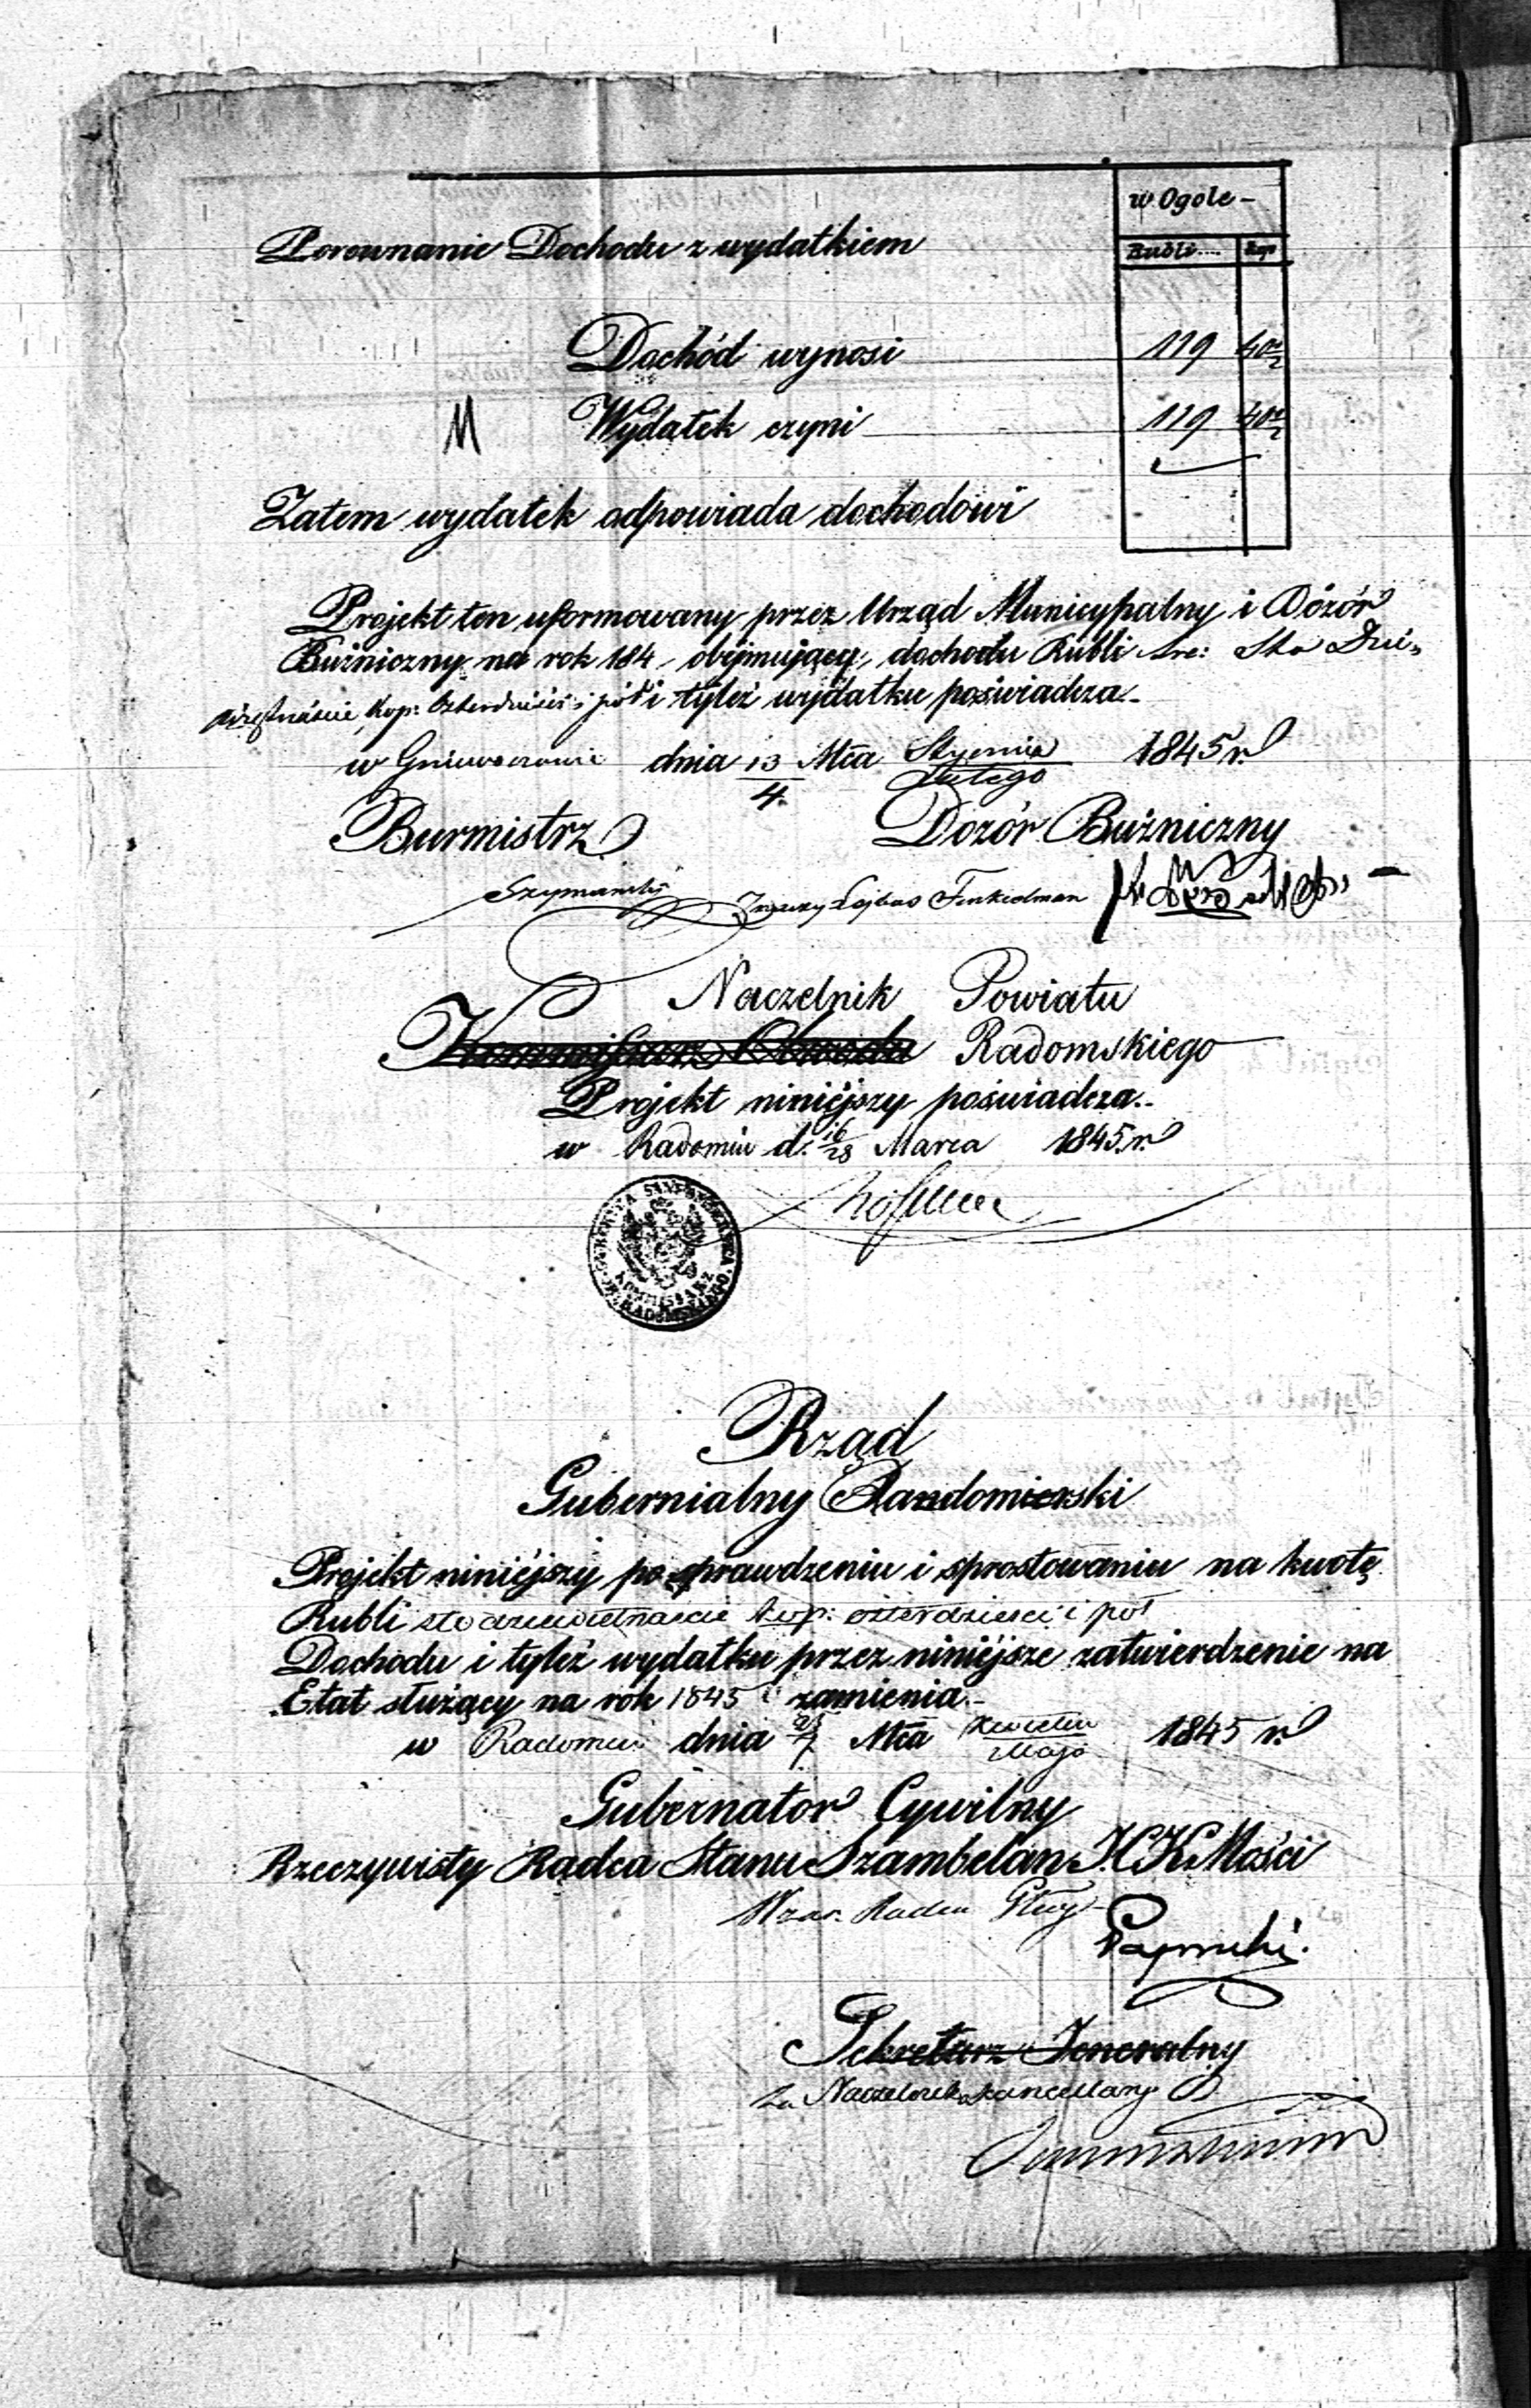 w Ogóle -
Rubli.... Kop
Porownanie Dochodu z wydatkiem
Dochód wynosi 119 40½
Wydatek czyni 119 40½
Zatem wydatek odpowiada dochodowi
Projekt ten uformowany przez Urząd Municypalny i Dózór
Bużniczny na rok 184 obéjmujący, dochodu Rubli sre: Sto Dzie„
więtnaście Kop: Czterdzieści i pół i tyleż wydatku poświadcza.-
w Gniewoszowie dnia 13/4 Mca Stycznia/Lutego 1845 r.
Burmistrz Dozór Bużniczny
Szymański Lejbus Finkielman
Naczelnik Powiatu
Kommissarz Obwodu Radomskiego
Projekt niniéjszy poświadcza.-
w Radomiu d. 16/28 Marca 1845 r.
GUBERNIA SANDOMIERSKA
KOMMISSARZ
RADOMSKIEGO
Rząd
Gubernialny Sandomierski
Projekt niniéjszy po sprawdzeniu i sprostowaniu na kwotę
Rubli sto dziewietnascie kop: czterdziesci i pół
Dochodu i tyleż wydatku przez niniéjsze zatwierdzenie na
Etat służący na rok 1845 zamienia.-
w Radomiu dnia 25/7 Mca Kwietnia/Maja 1845 r.
Gubernator Cywilny
Rzeczywisty Radca Stanu Szambelan J.C.K.Mości
Radca
Sekretarz Jeneralny
za Naczelnika Kancellaryi